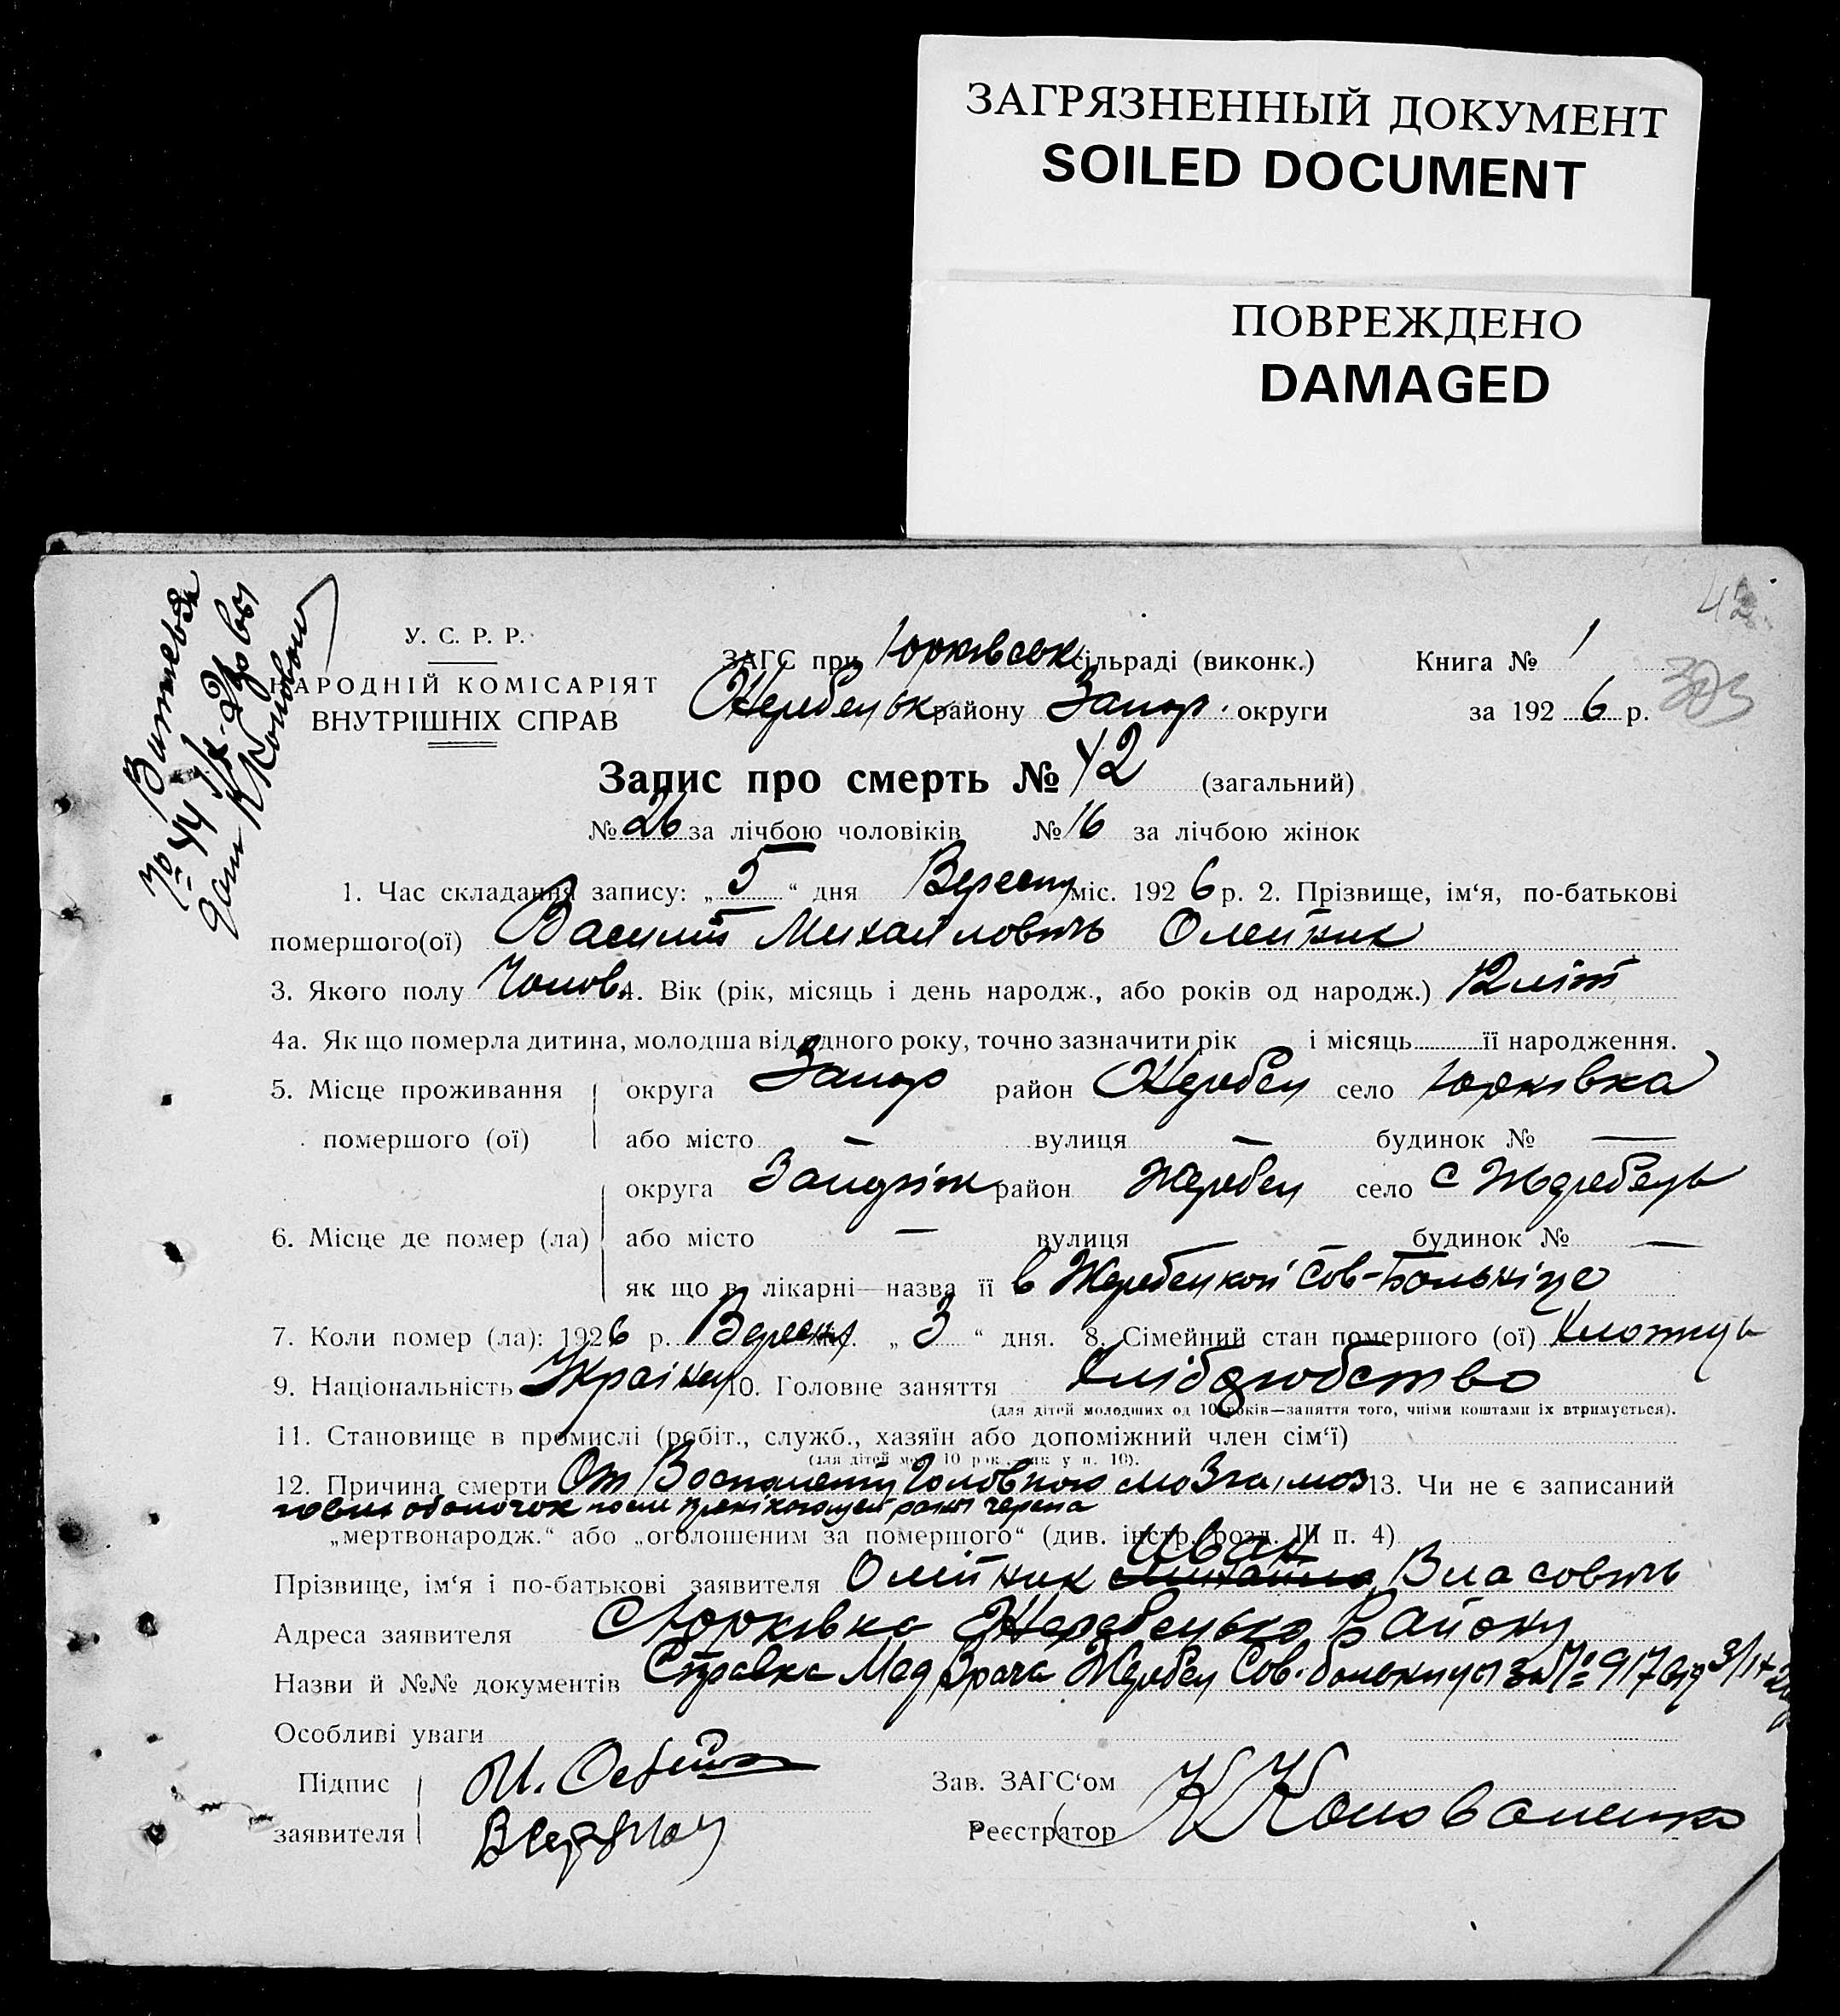 ЗАГРЯЗНЕННЫЙ ДОКУМЕНТ
SOILED DOCUMENT
ПОВРЕЖДЕНО
DAMAGED
У. С. Р. Р.
НАРОДНІЙ КОМІСАРІЯТ
ВНУТРІШНІХ СПРАВ
ЗАГС при Юрківськ сільраді (виконк.) Книга № 1
Жеребецьк району Запор. округи за 1926 р.
Запис про смерть № 42 (загальний)
№ 26 за лічбою чоловіків № 16 за лічбою жінок
1. Час складання запису: „5“ дня Вересня міс. 1926 р. 2. Прізвище, ім‘я, по-батькові
помершого(ої) Василій Михайлович Олейник
3. Якого полу Чолов. 4. Вік (рік, місяць і день народж., або років од народж.) 12 літ
4а. Як що померла дитина, молодша від одного року, точно зазначити рік і місяць її народження.
5. Місце проживання округа Запор район Жеребец село Юрківка
помершого (ої) або місто — вулиця — будинок № —
округа Запоріж район Жеребец село с Жеребець
6. Місце де помер (ла) або місто — вулиця — будинок № —
як що в лікарні—назва її в Жеребецкой Сов-Больніце
7. Коли помер (ла): 1926 р. Вересня міс. „3“ дня. 8. Сімейний стан помершого (ої) Хлопець
9. Національність Українец 10. Головне заняття Хліборобство
(для дітей молодших од 10 років—заняття того, чиїми коштами їх втримується).
11. Становище в промислі (робіт., служб., хазяїн або допоміжний член сім‘ї)
(для дітей мол. 10 рок., як у п. 10).
12. Причина смерти От Воспалення Головного мозга, моз 13. Чи не є записаний
говых оболочок после раны черепа
„мертвонародж.“ або „оголошеним за помершого“ (див. інстр. розд. III п. 4)
Иван
Прізвище, ім‘я і по-батькові заявителя Олійник Михайло Власович
Адреса заявителя С Юрківка Жеребецько Району
Назви й №№ документів Справка Мед Врача Жеребец Сов. больницы за № 917 від 3/IX
Особливі уваги
Підпис И. Олейник Зав. ЗАГС‘ом
заявителя Реєстратор К Коноваленко